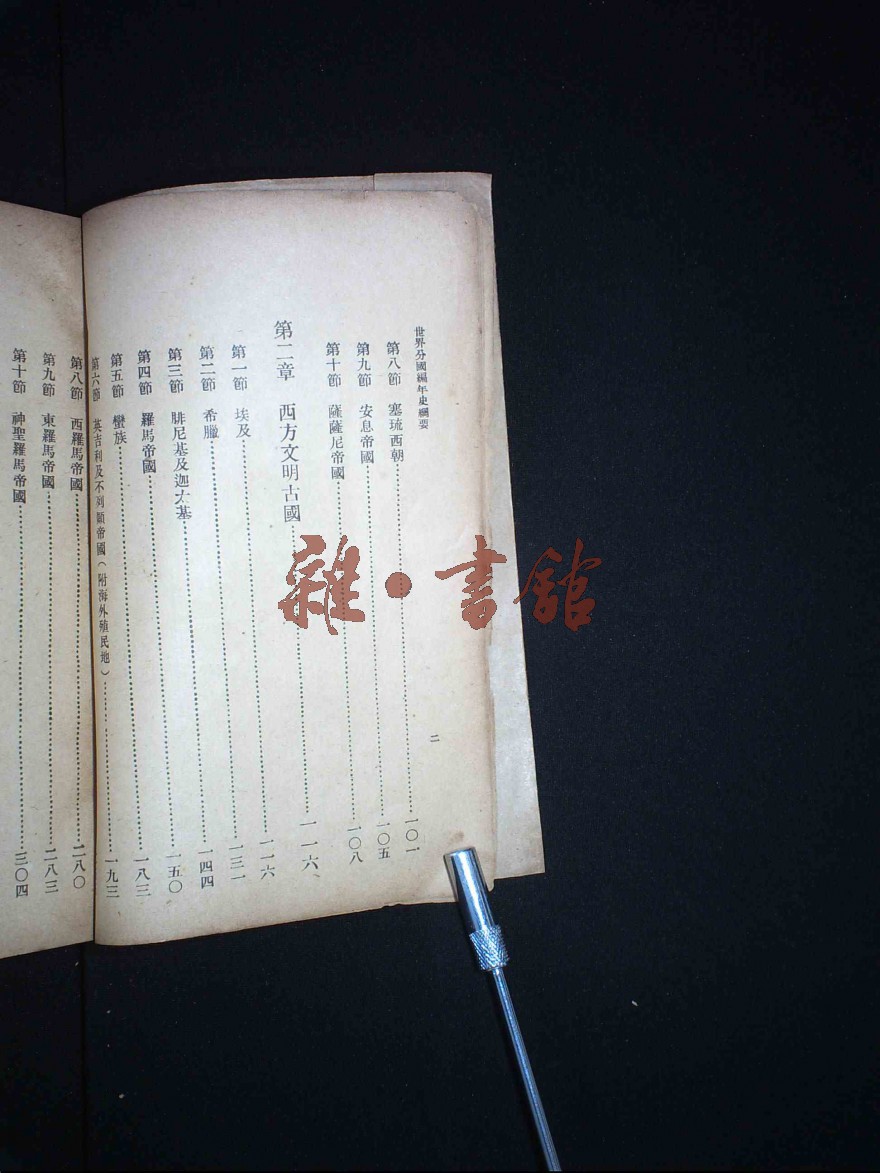 世界分國編年史綱要
二
第八節 塞琉西朝……一〇一
第九節 安息帝國……一〇五
第十節 薩薩尼帝國……一〇八
第二章 西方文明古國……一一六
第一節 埃及……一一六
第二節 希臘……一三一
第三節 腓尼基及迦太基……一四四
第四節 羅馬帝國……一五〇
第五節 蠻族……一八三
第六節 英吉利及不列顛帝國(附海外殖民地)……一九三
第八節 西羅馬帝國……二八〇
第九節 東羅馬帝國……二八三
第十節 神聖羅馬帝國……三〇四
雜·書館